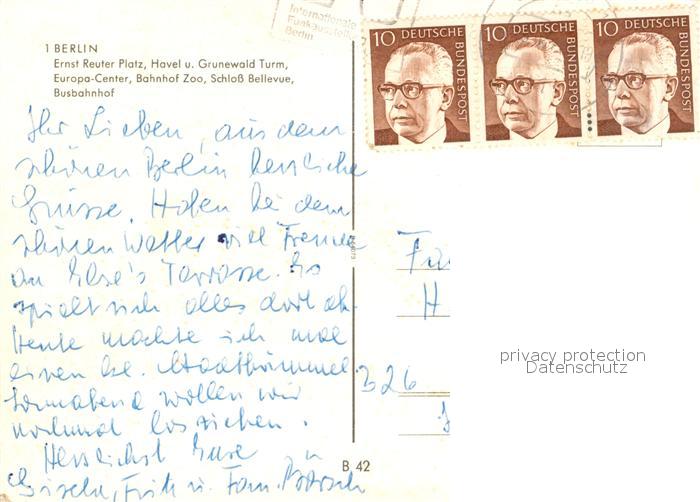 Internationale
Funkausstellung
Berlin
10 DEUTSCHE BUNDESPOST
10 DEUTSCHE BUNDESPOST
10 DEUTSCHE BUNDESPOST
1 BERLIN
Ernst Reuter Platz, Havel u. Grunewald Turm,
Europa-Center, Bahnhof Zoo, Schloß Bellevue,
Busbahnhof
Ihr Lieben, aus dem
schönen Berlin herzliche
Grüsse. Haben bei dem
schönen Wetter viel Freude
an Else's Terrasse. Es
spielt sich alles dort ab.
Heute machte ich mal
einen kl. Stadtbummel
Sonnabend wollen wir
nochmal losziehen.
Herzlichst Eure
Gisela, Fritz u. Fam.
Fa
H
326
B 42
privacy protection
Datenschutz